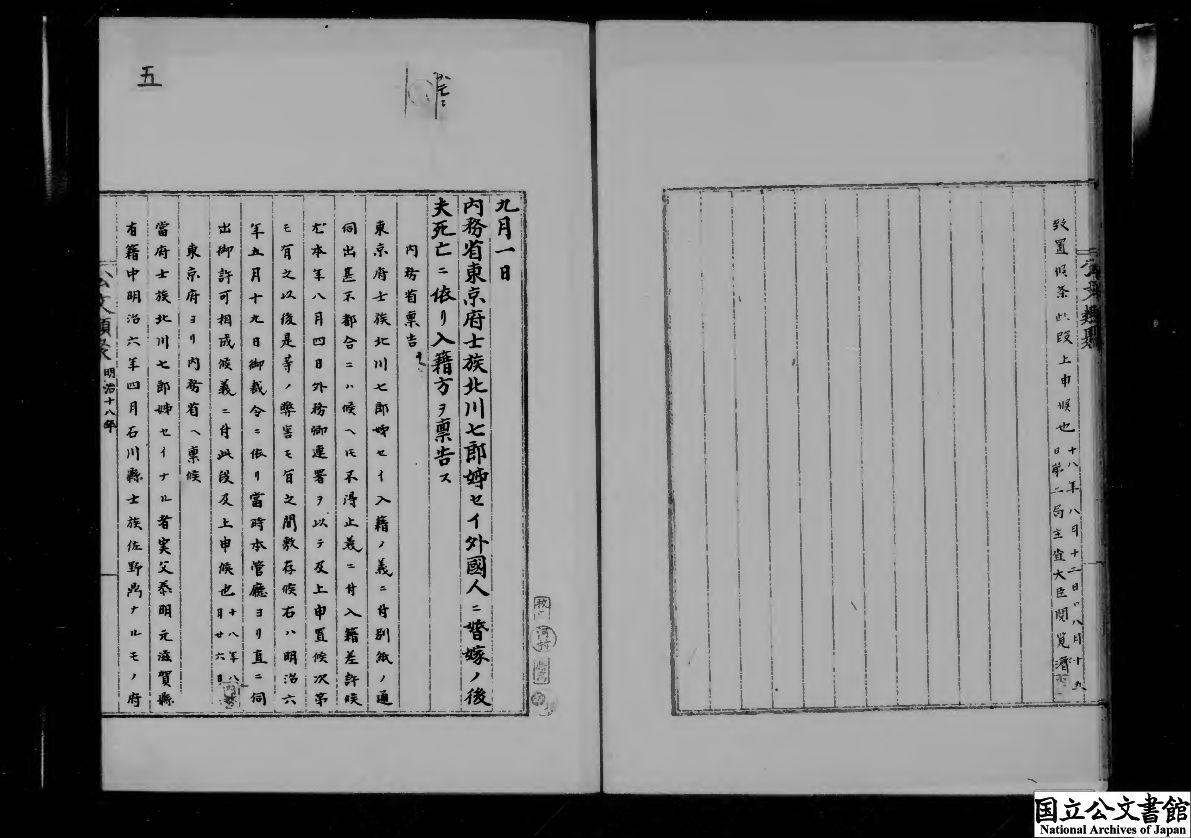 致置候条此段上申候也 十八年八月十二日〇八月十九
日第二局主査大臣閲覧済
公文類聚
五
九月一日
内務省東京府士族北川七郎姉セイ外國人ニ婚嫁ノ後
夫死亡ニ依リ入籍方ヲ稟告ス
内務省稟告
東京府士族北川七郎姉セイ入籍ノ義ニ付別紙ノ通
伺出甚不都合ニハ候ヘ圧不得止義ニ付入籍差許候
尤本年八月四日外務卿連署ヲ以テ及上申置候次第
モ有之以後是等ノ弊害モ有之間敷存候右ハ明治六
年五月十九日御裁令ニ依リ當時本管廳ヨリ直ニ伺
出御許可相成候義ニ付此段及上申候也 十八年八
月廿六日
東京府ヨリ内務省ヘ稟候
當府士族北川七郎姉セイナル者実父泰明元滋賀縣
有籍中明治六年四月石川縣士族佐野鼎ナルモノ府
公文類聚 明治十八年
国立公文書館
National Archives of Japan